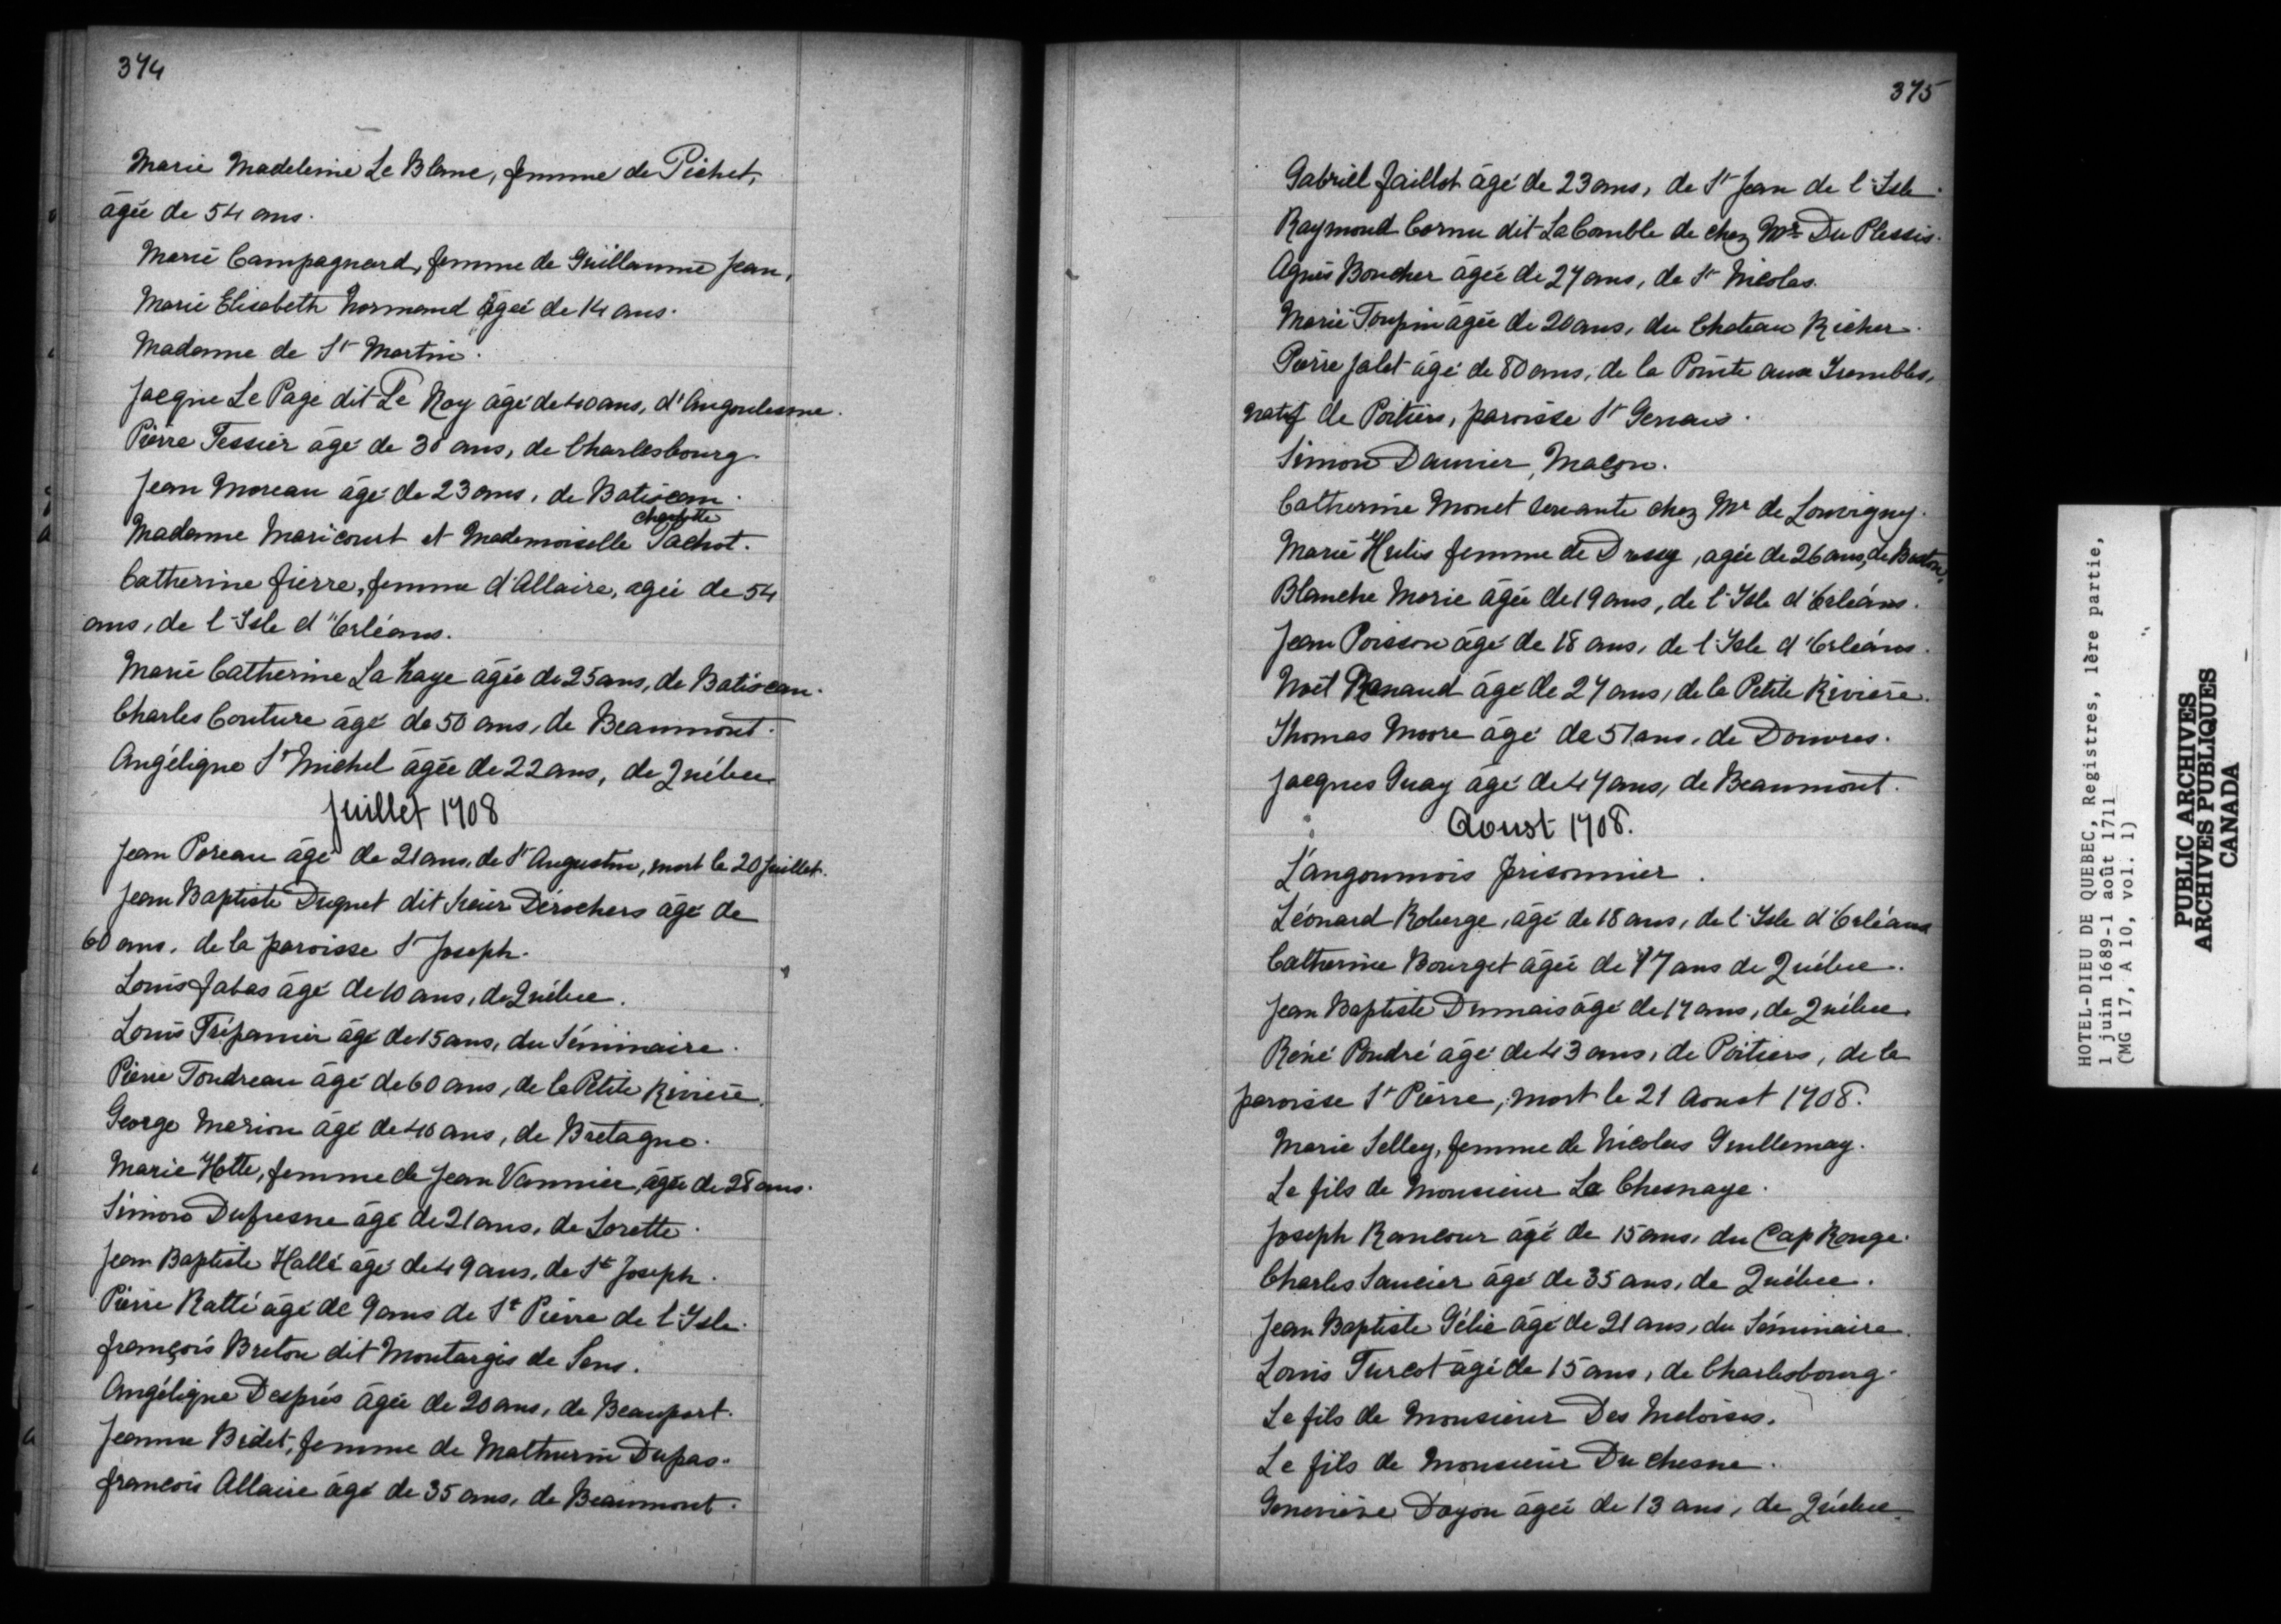 374
Marie Madeleine Le Blanc, femme de Pichet,
âgée de 54 ans.
Marie Campagnard, femme de Guillaume Jean,
Marie Elisabeth Normand âgée de 14 ans.
Madame de St Martin.
Jacque Le Page dit Le Roy âgé de 40 ans, d'Angoulesme.
Pierre Tessier âgé de 30 ans, de Charlesbourg.
Jean Moreau âgé de 23 ans, de Batiscan.
Charlotte
Madame Maricourt et Mademoiselle Pachot.
Catherine fierre, femme d'Allaire, agée de 54
ans, de l'Isle d'Orléans.
Marie Catherine La haye âgée de 25 ans, de Batiscan.
Charles Couture âgé de 50 ans, de Beaumont.
Angélique St Michel âgée de 22 ans, de Québec
Juillet 1708
Jean Poreau âgé de 21 ans, de St Augustin, mort le 20 Juillet.
Jean Baptiste Duquet dit Sieur Dérochers âgé de
60 ans, de la paroisse St Joseph.
Louis Jabas âgé de 10 ans, de Québec.
Louis Trépanier âgé de 15 ans, du Séminaire.
Pierre Tondreau âgé de 60 ans, de la Petite Rivière.
George Marion âgé de 40 ans, de Bretagne.
Marie Hotte, femme de Jean Vannier, âgée de 28 ans.
Simon Dufresne âgé de 21 ans, de Lorette.
Jean Baptiste Hallé âgé de 49 ans, de St Joseph.
Pierre Ratté âgé de 9 ans de St Pierre de l'Isle.
françois Breton dit Montargis de Sens.
Angélique Desprès âgée de 20 ans, de Beauport.
Jeanne Bidet, femme de Mathurin Dupas.
françois Allaire âgé de 35 ans, de Beaumont.
375
Gabriel Jaillot âgé de 23 ans, de St Jean de l'Isle.
Raymond Cornu dit La Comble de chez Mr Du Plessis.
Agnès Boucher âgée de 27 ans, de St Nicolas.
Marie Toupin âgée de 20 ans, du Chateau Richer.
Pierre Jalet âgé de 80 ans, de la Pointe aux Trembles,
natif de Poitiers, paroisse St Gervais.
Simon Daunier, Maçon.
Catherine Monet servante chez Mr de Louvigny.
Marie Hulis femme de Drusy, agée de 26 ans, de Baston.
Blanche Marie âgée de 19 ans, de l'Isle d'Orléans.
Jean Poisson âgé de 18 ans, de l'Isle d'Orléans.
Noël Renaud âgé de 27 ans, de la Petite Rivière.
Thomas Moore âgé de 51 ans, de Douvres.
Jacques Guay âgé de 47 ans, de Beaumont.
Aoust 1708.
L'angoumois prisonnier.
Léonard Roberge, âgé de 18 ans, de l'Isle d'Orléans
Catherine Bourget âgée de 17 ans de Québec.
Jean Baptiste Dumais âgé de 17 ans, de Québec.
René Poudré âgé de 43 ans, de Poitiers, de la
paroisse St Pierre, mort le 21 Aoust 1708.
Marie Selley, femme de Nicolas Guillemay.
Le fils de Monsieur La Chesnaye.
Joseph Rancour âgé de 15 ans, du Cap Rouge.
Charles Saucier âgé de 35 ans, de Québec.
Jean Baptiste Gélie âgé de 21 ans, du Séminaire.
Louis Turcot âgé de 15 ans, de Charlesbourg.
Le fils de Monsieur Des Meloises.
Le fils de Monsieur Du chesne.
Geneviève Doyon âgée de 13 ans, de Québec.
HOTEL-DIEU DE QUEBEC, Registres, 1ère partie,
1 juin 1689-1 août 1711
(MG 17, A 10, vol. 1)
PUBLIC ARCHIVES
ARCHIVES PUBLIQUES
CANADA